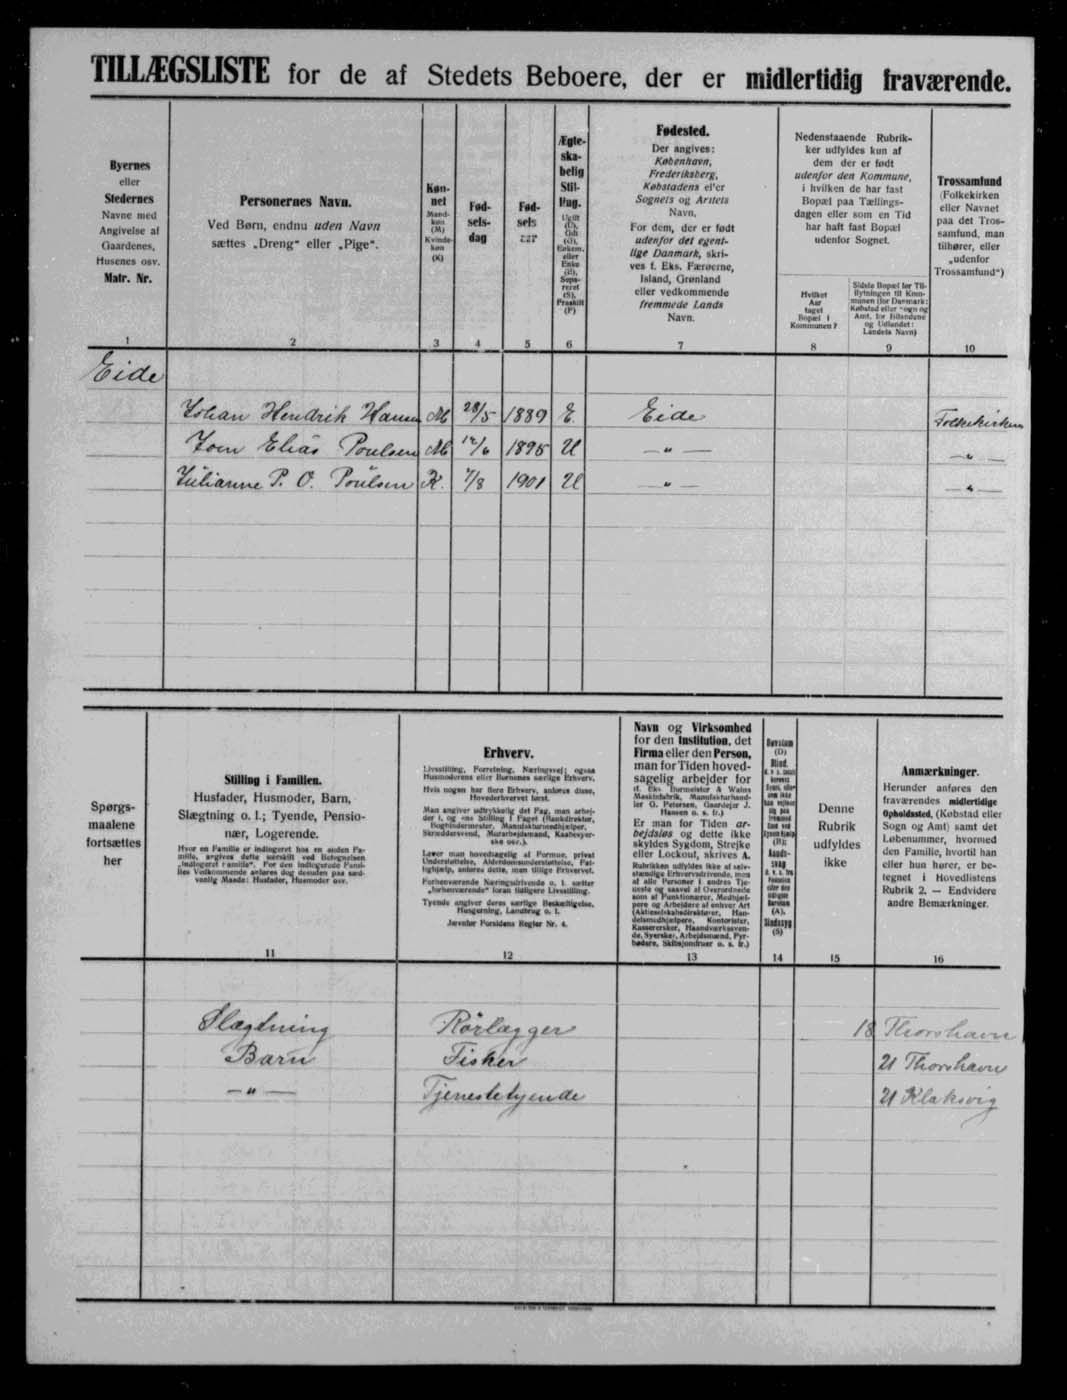 TILLÆGSLISTE for de af Stedets Beboere, der er midlertidig fraværende.
Byernes
eller
Stedernes
Navne med
Angivelse af
Gaardenes,
Husenes osv.
Matr. Nr.
Personernes Navn.
Ved Børn, endnu uden Navn
sættes „Dreng“ eller „Pige“.
Køn-
net
Mand-
køn
(M)
Kvinde-
køn
(K)
Fød-
sels-
dag
Fød-
sels
aar
Ægte-
ska-
belig
Stil-
ling.
Ugift
(U),
Gift
(G),
Enkem.
eller
Enke
(E),
Sepa-
reret
(S),
Fraskilt
(F)
Fødested.
Der angives:
København,
Frederiksberg,
Købstadens eller
Sognets og Amtets
Navn.
For dem, der er født
udenfor det egent-
lige Danmark, skri-
ves f. Eks. Færøerne,
Island, Grønland
eller vedkommende
fremmede Lands
Navn.
Nedenstaaende Rubrik-
ker udfyldes kun af
dem der er født
udenfor den Kommune,
i hvilken de har fast
Bopæl paa Tællings-
dagen eller som en Tid
har haft fast Bopæl
udenfor Sognet.
Hvilket
Aar
taget
Bopæl i
Kommunen?
Sidste Bopæl før Til-
flytningen til Kom-
munen (for Danmark:
Købstad eller Sogn og
Amt, for Bilandene
og Udlandet:
Landets Navn)
Trossamfund
(Folkekirken
eller Navnet
paa det Tros-
samfund, man
tilhører, eller
„udenfor
Trossamfund“)
1 2 3 4 5 6 7 8 9 10
Eide
Johan Hendrik Hansen M 28/5 1889 E. Eide Folkekirken
Joen Eliás Poulsen M 12/6 1895 U — „ — — „ —
Júlianne P. O. Poúlsen K. 7/8 1901 U — „ — — „ —
Spørgs-
maalene
fortsættes
her
Stilling i Familien.
Husfader, Husmoder, Barn,
Slægtning o. l.; Tyende, Pensio-
nær, Logerende.
Hvor en Familie er indlogeret hos en anden Fa-
milie, angives dette særskilt ved Betegnelsen
„indlogeret Familie“. For den indlogerede Fami-
lies Vedkommende anføres dog desuden paa sæd-
vanlig Maade: Husfader, Husmoder osv.
Erhverv.
Livsstilling, Forretning, Næringsvej; ogsaa
Husmoderens eller Børnenes særlige Erhverv.
Hvis nogen har flere Erhverv, anføres disse,
Hovederhvervet først.
Man angiver udtrykkelig det Fag, man arbej-
der i, og ens Stilling i Faget (Bankdirektør,
Bogbindermester, Manufakturmedhjælper,
Skræddersvend, Murarbejdsmand, Kaabesyer-
ske osv.).
Lever man hovedsagelig af Formue, privat
Understøttelse, Aldersomsunderstøttelse, Fat-
tighjælp, anføres dette, man tillige Erhvervet.
Forhenværende Næringsdrivende o. l. sætter
„forhenværende“ foran tidligere Livsstilling.
Tyende angiver deres særlige Beskæftigelse,
Husgerning, Landbrug o. l.
Jævnfør Forsidens Regler Nr. 4.
Navn og Virksomhed
for den Institution, det
Firma eller den Person,
man for Tiden hoved-
sagelig arbejder for
(f. Eks. Burmeister & Wains
Maskinfabrik, Manufakturhand-
ler O. Petersen, Gaardejer J.
Hansen o. s. fr.)
Er man for Tiden ar-
bejdsløs og dette ikke
skyldes Sygdom, Strejke
eller Lockout, skrives A.
Rubrikken udfyldes ikke af selv-
stændige Erhvervsdrivende, men
af alle Personer i andres Tje-
neste og saavel af Overordnede
som af Funktionærer, Medhjæl-
pere og Arbejdere af enhver Art
(Aktieselskabsdirektører, Han-
delsmedhjælpere, Kontorister,
Kasserersker, Haandværkssven-
de, Syersker, Arbejdsmænd, Fyr-
bødere, Skibsjomfruer o. s. fr.)
Døvstum
(D)
Blind,
(B);
Aands-
svag
(A),
Sindssyg
(S)
Denne
Rubrik
udfyldes
ikke
Anmærkninger.
Herunder anføres den
fraværendes midlertidige
Opholdssted, (Købstad eller
Sogn og Amt) samt det
Løbenummer, hvormed
den Familie, hvortil han
eller hun hører, er be-
tegnet i Hovedlistens
Rubrik 2. — Endvidere
andre Bemærkninger.
11 12 13 14 15 16
Slægtning Rörlægger 18 Thorshavn
Barn Fisker 21 Thorshavn
— „ — Tjenestetyende 21 Klaksvig